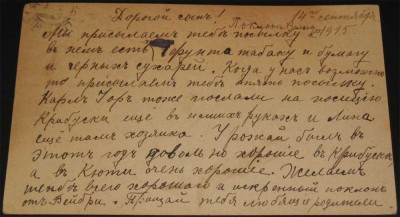 Дорогой сынъ! 14го сентября
1915
Мы присылаемъ тебѣ посылку
въ немъ есть фунта табаку и бумагу
и черныхъ сухарей. Когда у насъ возможно
то присылаемъ тебѣ опять посылку.
Карлъ тоже послали на позицію
Крибуски еще въ нашихъ рукахъ и Лина
ещё тамъ хозяика. Урожай былъ въ
этотъ годъ довольно хорошіе въ Крибуска
а въ очень хорошіе. Желаемъ
тебѣ всего хорошаго и искренный поклонъ
отъ Вейдри. Прощай тебя любящіе родители